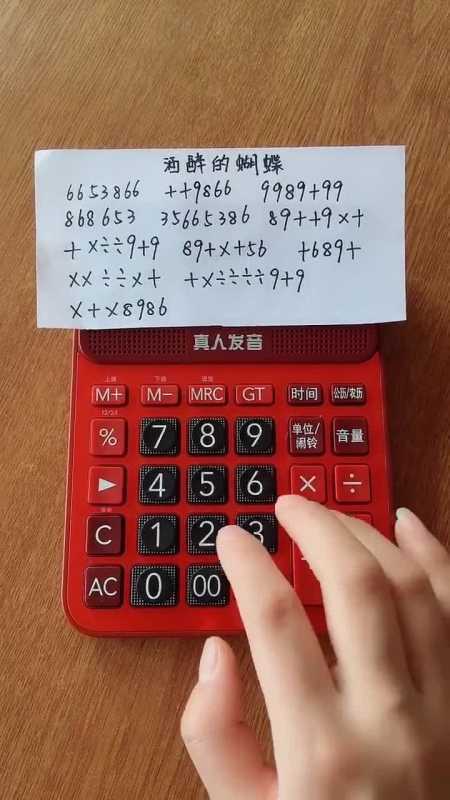 酒醉的蝴蝶
6653866 ++9866 9989+99
868653 35665386 89++9×+
+×÷÷9+9 89+×+56 +689+
×× ÷÷×+ +×÷÷÷÷9+9
×+×8986
真人发音
M+ M− MRC GT 时间 公历/农历
% 7 8 9 单位/闹铃 音量
▶ 4 5 6 × ÷
C 1 2 3
AC 0 00